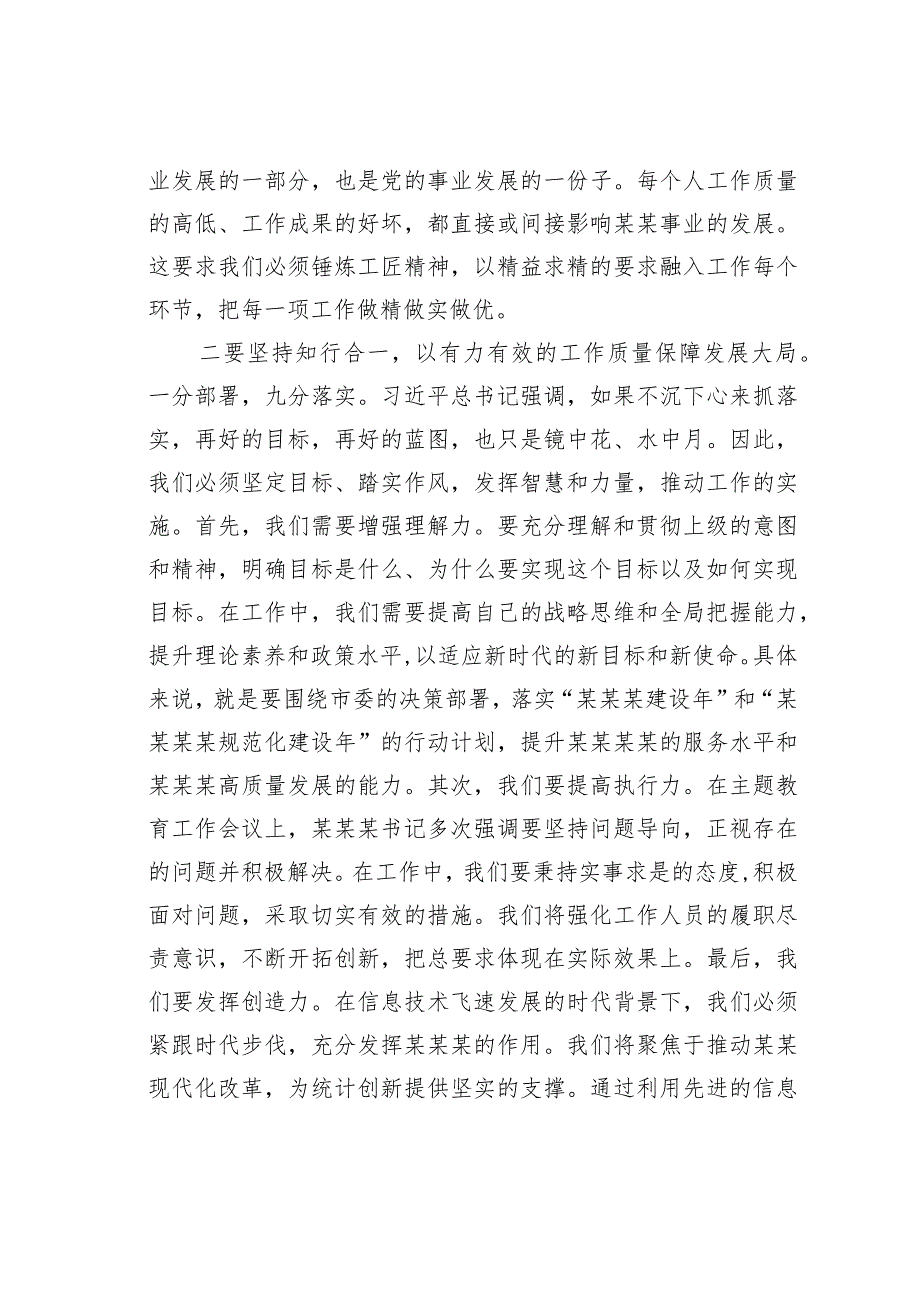 业发展的一部分，也是党的事业发展的一份子。每个人工作质量
的高低、工作成果的好坏，都直接或间接影响某某事业的发展。
这要求我们必须锤炼工匠精神，以精益求精的要求融入工作每个
环节，把每一项工作做精做实做优。
二要坚持知行合一，以有力有效的工作质量保障发展大局。
一分部署，九分落实。习近平总书记强调，如果不沉下心来抓落
实，再好的目标，再好的蓝图，也只是镜中花、水中月。因此，
我们必须坚定目标、踏实作风，发挥智慧和力量，推动工作的实
施。首先，我们需要增强理解力。要充分理解和贯彻上级的意图
和精神，明确目标是什么、为什么要实现这个目标以及如何实现
目标。在工作中，我们需要提高自己的战略思维和全局把握能力，
提升理论素养和政策水平,以适应新时代的新目标和新使命。具体
来说，就是要围绕市委的决策部署，落实“某某某建设年”和“某
某某某规范化建设年”的行动计划，提升某某某某的服务水平和
某某某高质量发展的能力。其次，我们要提高执行力。在主题教
育工作会议上，某某某书记多次强调要坚持问题导向，正视存在
的问题并积极解决。在工作中，我们要秉持实事求是的态度,积极
面对问题，采取切实有效的措施。我们将强化工作人员的履职尽
责意识，不断开拓创新，把总要求体现在实际效果上。最后，我
们要发挥创造力。在信息技术飞速发展的时代背景下，我们必须
紧跟时代步伐，充分发挥某某某的作用。我们将聚焦于推动某某
现代化改革，为统计创新提供坚实的支撑。通过利用先进的信息